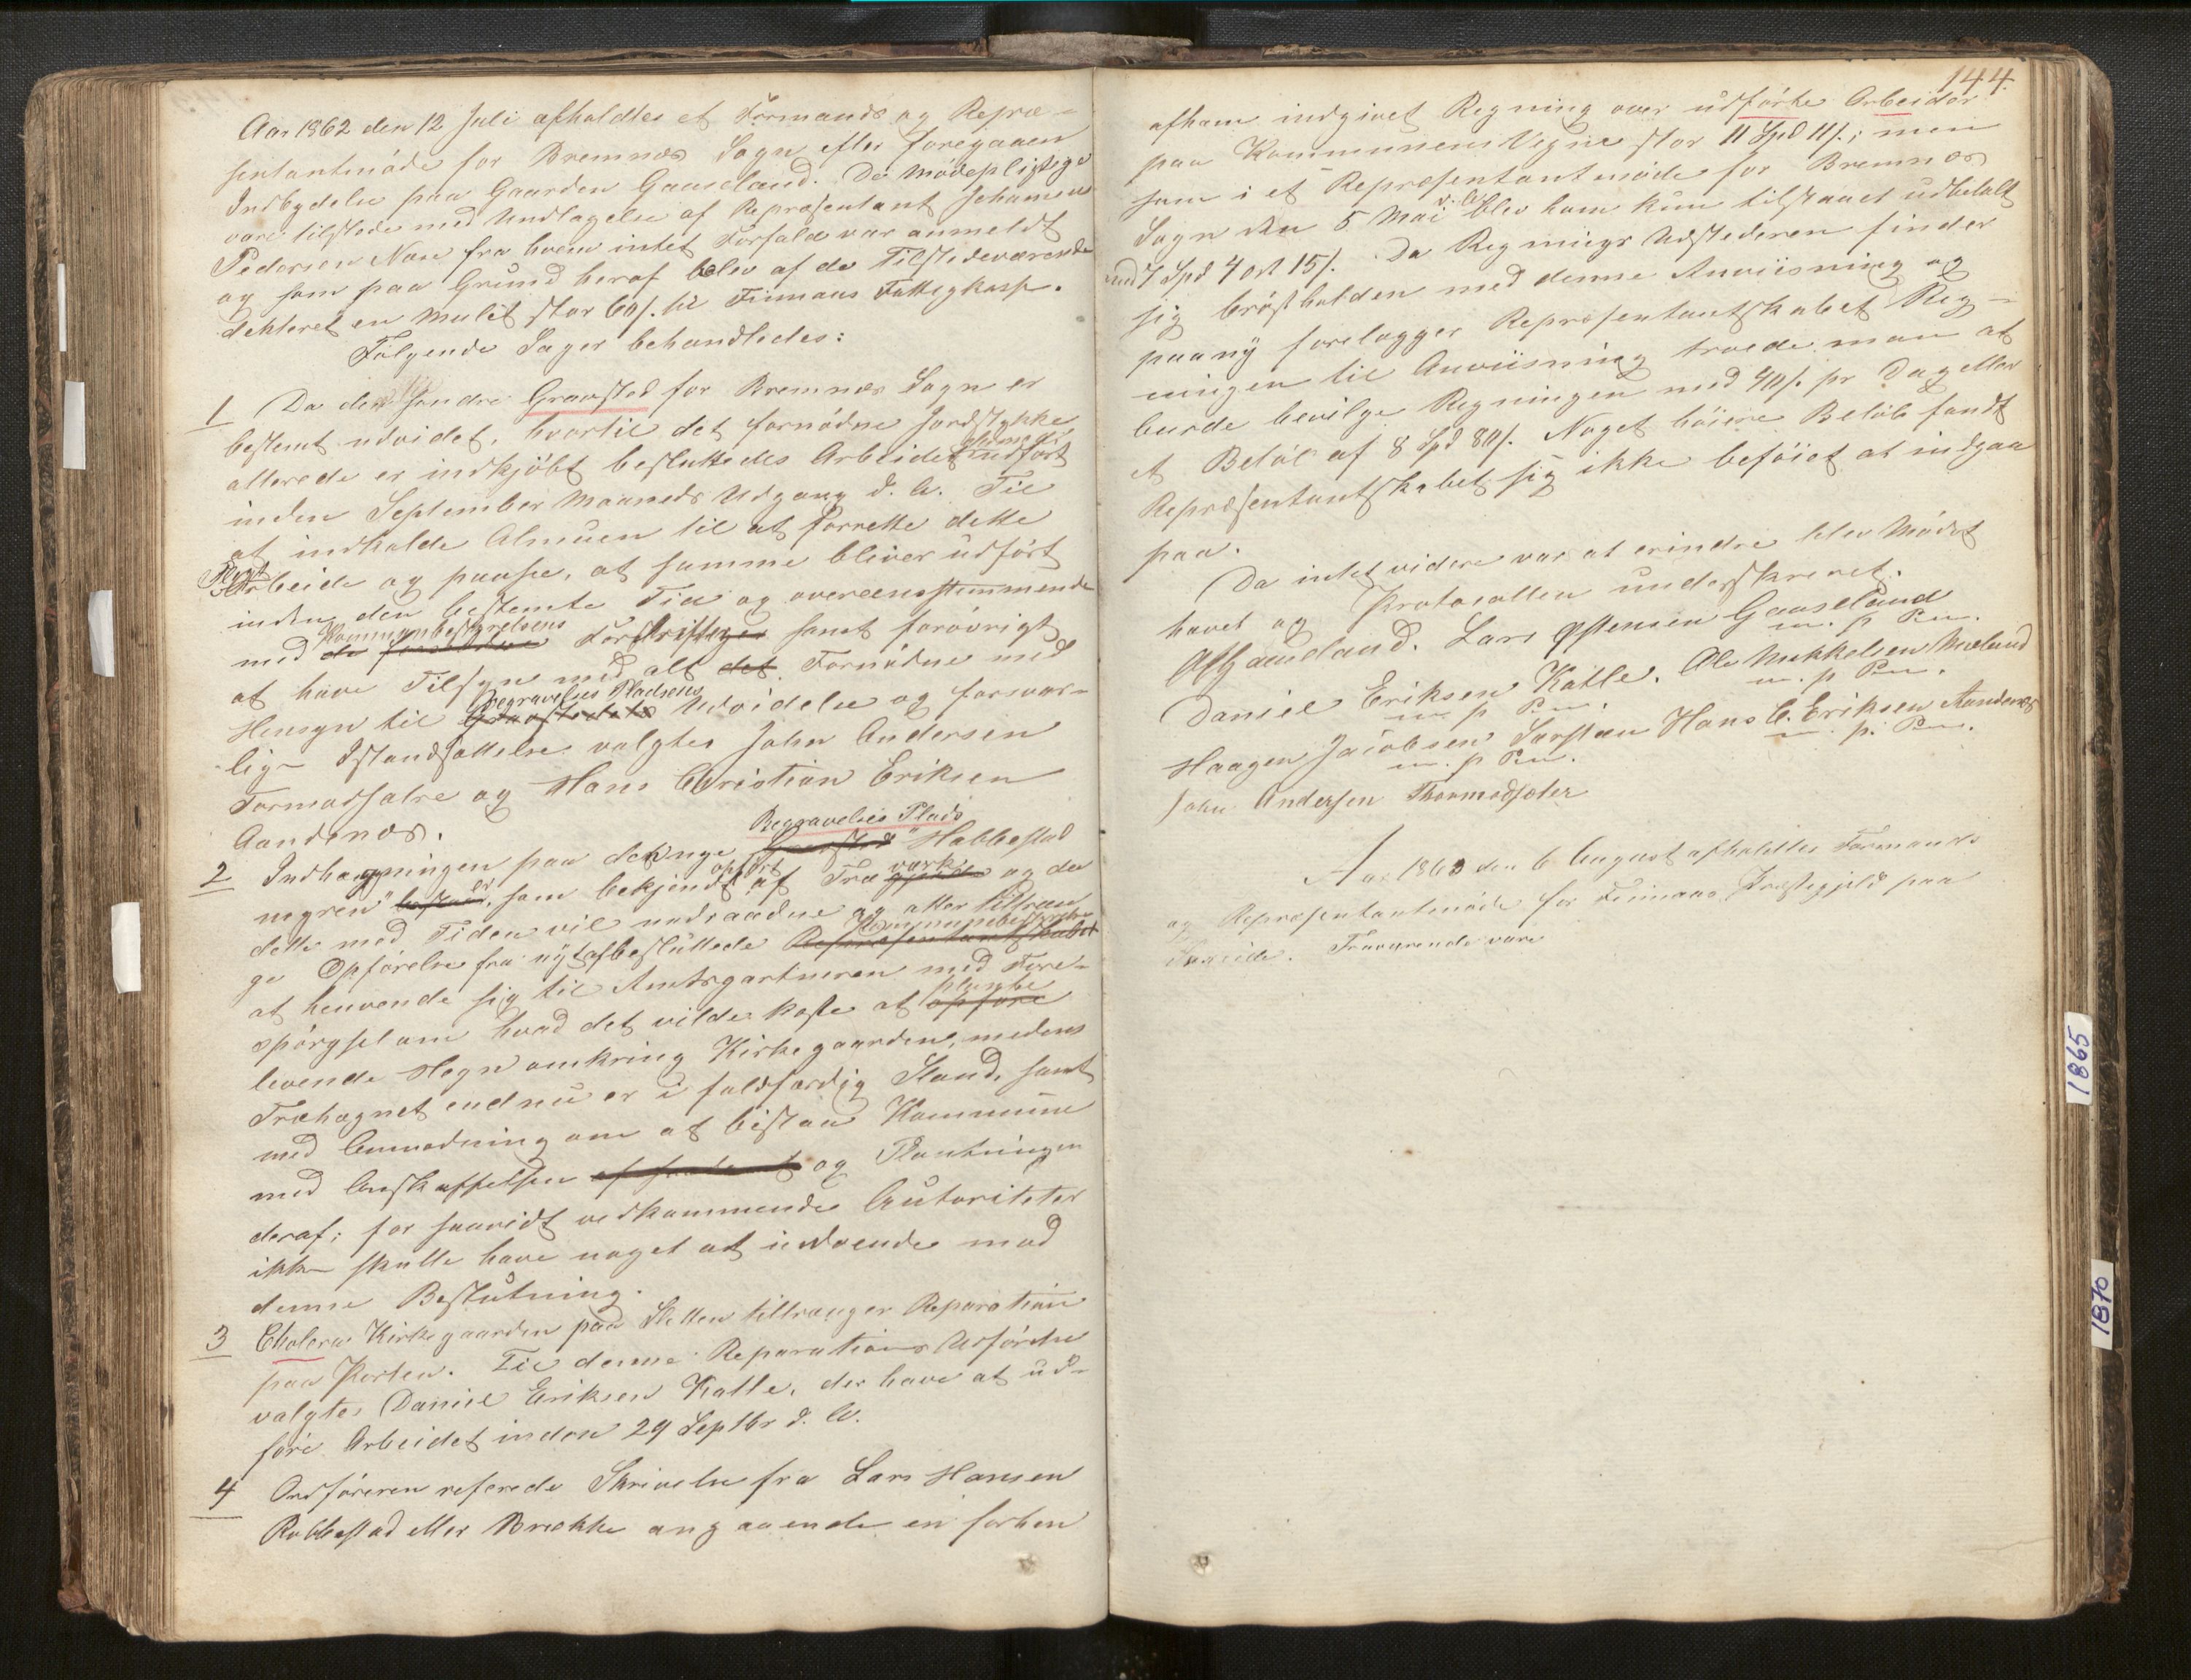 Aar 1862 den 12 Juli afholdtes et Formands og Repræ-
sentantmøde for Bremnæs Sogn efter foregaaen
Indbydelse paa Gaarden Gaaseland. De Mødepligtige
vare tilstede med Undtagelse af Repræsentant Johannes
Pedersen Næse fra hvem intet Forfald var anmeldt
og som paa Grund heraf blev af de Tilstedeværende
dikteret en Mulct stor 60 s. til Finnaas Fattigkasse.
Følgende Sager behandledes:
1 Da det søndre Gravsted for Bremnæs Sogn er
bestemt udvidet, hvortil det fornødne Jordstykke
allerede er indkjøbt besluttedes Arbeidet udført
inden September Maaneds Udgang d. A. Til
at indkalde Almuen til at forrette dette
Pligt
Arbeide og paasee, at samme bliver udført
inden den bestemte Tid og overeensstemmende
Kommunbestyrelsens
med de Forskrifter samt forøvrigt
at have Tilsyn med alt det Fornødne med
Begravelses Pladsens
Hensyn til Gravstedets Udvidelse og forsvar-
lig Istandsættelse valgtes John Andersen
Tormodsætre og Hans Christian Eriksen
Aandenæs.
Begravelses Plads
2 Indhægningen paa dehnge Gravsted "Habbestad
er opført værke
myren" bestaar, som bekjendt af Træ og da
dette med Tiden vil nedraadne og atter tiltræn
Kommunebestyrelsen
ge Opførelse fra nyt af besluttede Repræsentantskabet
at henvende sig til Amtsgartneren med Fore-
plante
spørgsel om hvad det vilde koste at opføre
levende Hegn omkring Kirkegaarden, medens
Træhegnet endnu er i fuldfærdig Stand, samt
med Anmodning om at bistaa Kommune
med Anskaffelsen og Plantningen
deraf; for saavidt vedkommende Autoriteter
ikke skulle have noget at indvende mod
denne Beslutning.
3 Cholera Kirkegaarden paa Sletten tiltrænger Reparation
paa Porten. Til denne Reparations Udførelse
valgtes Daniel Eriksen Katle, der have at ud-
føre Arbeidet inden 29 Septbr d. A.
4 Ordføreren referede Skrivelse fra Lars Hansen
Rabbestad eller Brække angaaende en forhen
144.
af ham indgivet Regning over udførte Arbeider
paa Kommunens Vegne stor 11 Spd 11 s.; men
som i et Repræsentantmøde for Bremnæs
Sogn den 5 Mai blev ham kun tilstaaet udbetalt
med 7 Spd 4 ort 15 s. Da Regnings Udstederen finder
sig brøstholden med denne Anviisning og
paany forelægger Repræsentantskabet Reg-
ningen til Anviisning troede man at
burde bevilge Regningen med 40 s. pr Dag eller
et Beløb af 8 Spd 80 s. Noget høiere Beløb fandt
Repræsentantskabet sig ikke beføiet at indgaa
paa.
Da intet videre var at erindre blev Mødet
hævet og Protocollen underskrevet.
Lars Østensen Gaaseland
m. p Pen.
Daniel Eriksen Katle. Ole Mikkelsen Mæland
m. p Pen. m. p Pen.
Haagen Jacobsen Hans C. Eriksen Aandenæs
m. p Pen. m. p. Pen.
John Andersen Thormodsæter
Aar 1863 den 6 August afholdtes Formands
og Repræsentantmøde for Finnaas Præstegjeld paa
Nærværende vare
1865
1870